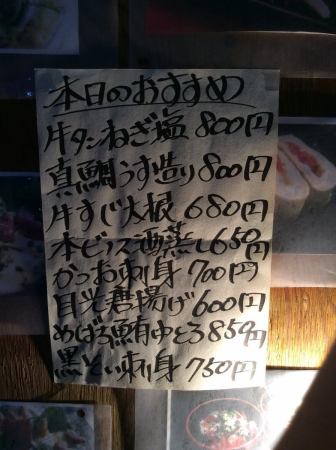 本日のおすすめ
牛タンねぎ塩 800円
真鯛うす造り 800円
牛すじ大根 680円
本ビノス酒蒸し 650円
かつお刺身 700円
目光唐揚げ 600円
めばち鮪中とろ 850円
黒そい刺身 750円